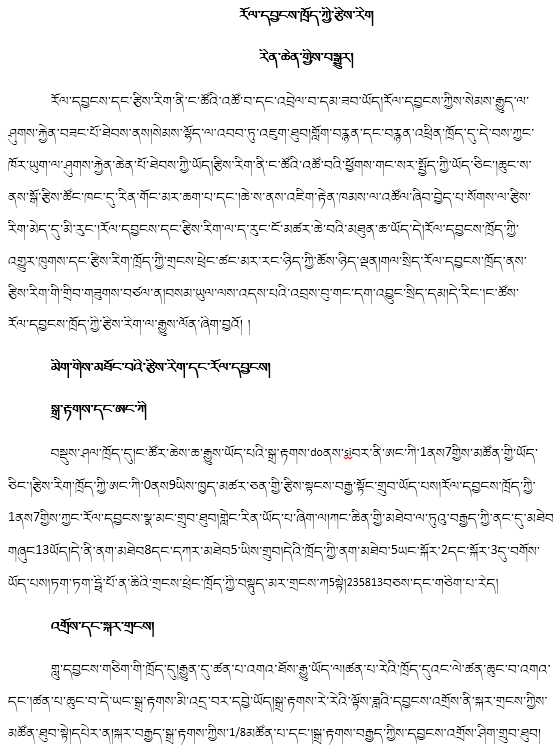 རོལ་དབྱངས་ཁྲོད་ཀྱི་རྩིས་རིག
རིན་ཆེན་གྱིས་བསྒྱུར།
རོལ་དབྱངས་དང་རྩིས་རིག་ནི་ང་ཚོའི་འཚོ་བ་དང་འབྲེལ་བ་དམ་ཟབ་ཡོད།རོལ་དབྱངས་ཀྱིས་སེམས་རྒྱུད་ལ་
ཤུགས་རྐྱེན་བཟང་པོ་ཐེབས་ནས།སེམས་ལྷོད་ལ་འབབ་ཏུ་འཇུག་ཐུབ།གློག་བརྙན་དང་བརྙན་འཕྲིན་ཁྲོད་དུ་དེ་བས་ཀྱང་
ཁོར་ཡུག་ལ་ཤུགས་རྐྱེན་ཆེན་པོ་ཐེབས་ཀྱི་ཡོད།རྩིས་རིག་ནི་ང་ཚོའི་འཚོ་བའི་ཕྱོགས་གང་སར་སྤྱོད་ཀྱི་ཡོད་ཅིང་།ཆུང་ས་
ནས་སྒོ་རྩིས་ཚོང་ཁང་དུ་རིན་གོང་མར་ཆག་པ་དང་།ཆེ་ས་ནས་འཇིག་རྟེན་ཁམས་ལ་འཚོལ་ཞིབ་བྱེད་པ་སོགས་ལ་རྩིས་
རིག་མེད་དུ་མི་རུང་།རོལ་དབྱངས་དང་རྩིས་རིག་ལ་ད་རུང་ངོ་མཚར་ཆེ་བའི་མཐུན་ཆ་ཡོད་དེ།རོལ་དབྱངས་ཁྲོད་ཀྱི་
འགྱུར་ཁུགས་དང་རྩིས་རིག་ཁྲོད་ཀྱི་གྲངས་ཕྲེང་ཚང་མར་རང་ཉིད་ཀྱི་ཆོས་ཉིད་ལྡན།གལ་སྲིད་རོལ་དབྱངས་ཁྲོད་ནས་
རྩིས་རིག་གི་གྲིབ་གཟུགས་བཙལ་ན།བསམ་ཡུལ་ལས་འདས་པའི་འབྲས་བུ་གང་དག་འབྱུང་སྲིད་དམ།དེ་རིང་།ང་ཚོས་
རོལ་དབྱངས་ཁྲོད་ཀྱི་རྩིས་རིག་ལ་རྒྱུས་ལོན་ཞིག་བྱའོ། །
མིག་གིས་མཐོང་བའི་རྩིས་རིག་དང་རོལ་དབྱངས།
སྒྲ་རྟགས་དང་ཨང་ཀི
བསྡུས་ཤལ་ཁྲོད་དུ།ང་ཚོར་ཆེས་ཆ་རྒྱུས་ཡོད་པའི་སྒྲ་རྟགས་doནས་siབར་ནི་ཨང་ཀི་1ནས7གྱིས་མཚོན་གྱི་ཡོད་
ཅིང་།རྩིས་རིག་ཁྲོད་ཀྱི་ཨང་ཀི་0ནས9ཡིས་ཁྱད་མཚར་ཅན་གྱི་རྩིས་སྟངས་བརྒྱ་སྟོང་གྲུབ་ཡོད་པས།རོལ་དབྱངས་ཁྲོད་ཀྱི་
1ནས7གྱིས་ཀྱང་རོལ་དབྱངས་སྣ་མང་གྲུབ་ཐུབ།གླེང་རིན་ཡོད་པ་ཞིག་ལ།ཀང་ཆིན་གྱི་མཐེབ་ལ་ཏུའུ་བརྒྱད་ཀྱི་ནང་དུ་མཐེབ་
གཞུང13ཡོད།དེ་ནི་ནག་མཐེབ8དང་དཀར་མཐེབ5་ཡིས་གྲུབ།དེའི་ཁྲོད་ཀྱི་ནག་མཐེབ་5ཡང་སྐོར་2དང་སྐོར་3དུ་བགོས་
ཡོད་པས།ཏག་ཏག་ཧྥི་པོ་ན་ཆེའི་གྲངས་ཕྲེང་ཁྲོད་ཀྱི་བསྡུད་མར་གྲངས་ཀ5སྟེ།235813བཅས་དང་གཅིག་པ་རེད།
འགྲོས་དང་སྐར་གྲངས།
གླུ་དབྱངས་གཅིག་གི་ཁྲོད་དུ།རྒྱུན་དུ་ཚན་པ་འགའ་ཐོས་རྒྱུ་ཡོད་ལ།ཚན་པ་རེའི་ཁྲོད་དུའང་ལེ་ཚན་ཆུང་བ་འགའ་
དང་།ཚན་པ་ཆུང་བ་དེ་ཡང་སྒྲ་རྟགས་མི་འདྲ་བར་དབྱེ་ཡོད།སྒྲ་རྟགས་རེ་རེའི་ལྟོས་ཟླའི་དབྱངས་འགྲོས་ནི་སྐར་གྲངས་ཀྱིས་
མཚོན་ཐུབ་སྟེ།དཔེར་ན།སྐར་བརྒྱད་སྒྲ་རྟགས་ཀྱིས་1/8མཚོན་པ་དང་།སྒྲ་རྟགས་བརྒྱད་ཀྱིས་དབྱངས་འགྲོས་ཤིག་གྲུབ་ཐུབ།